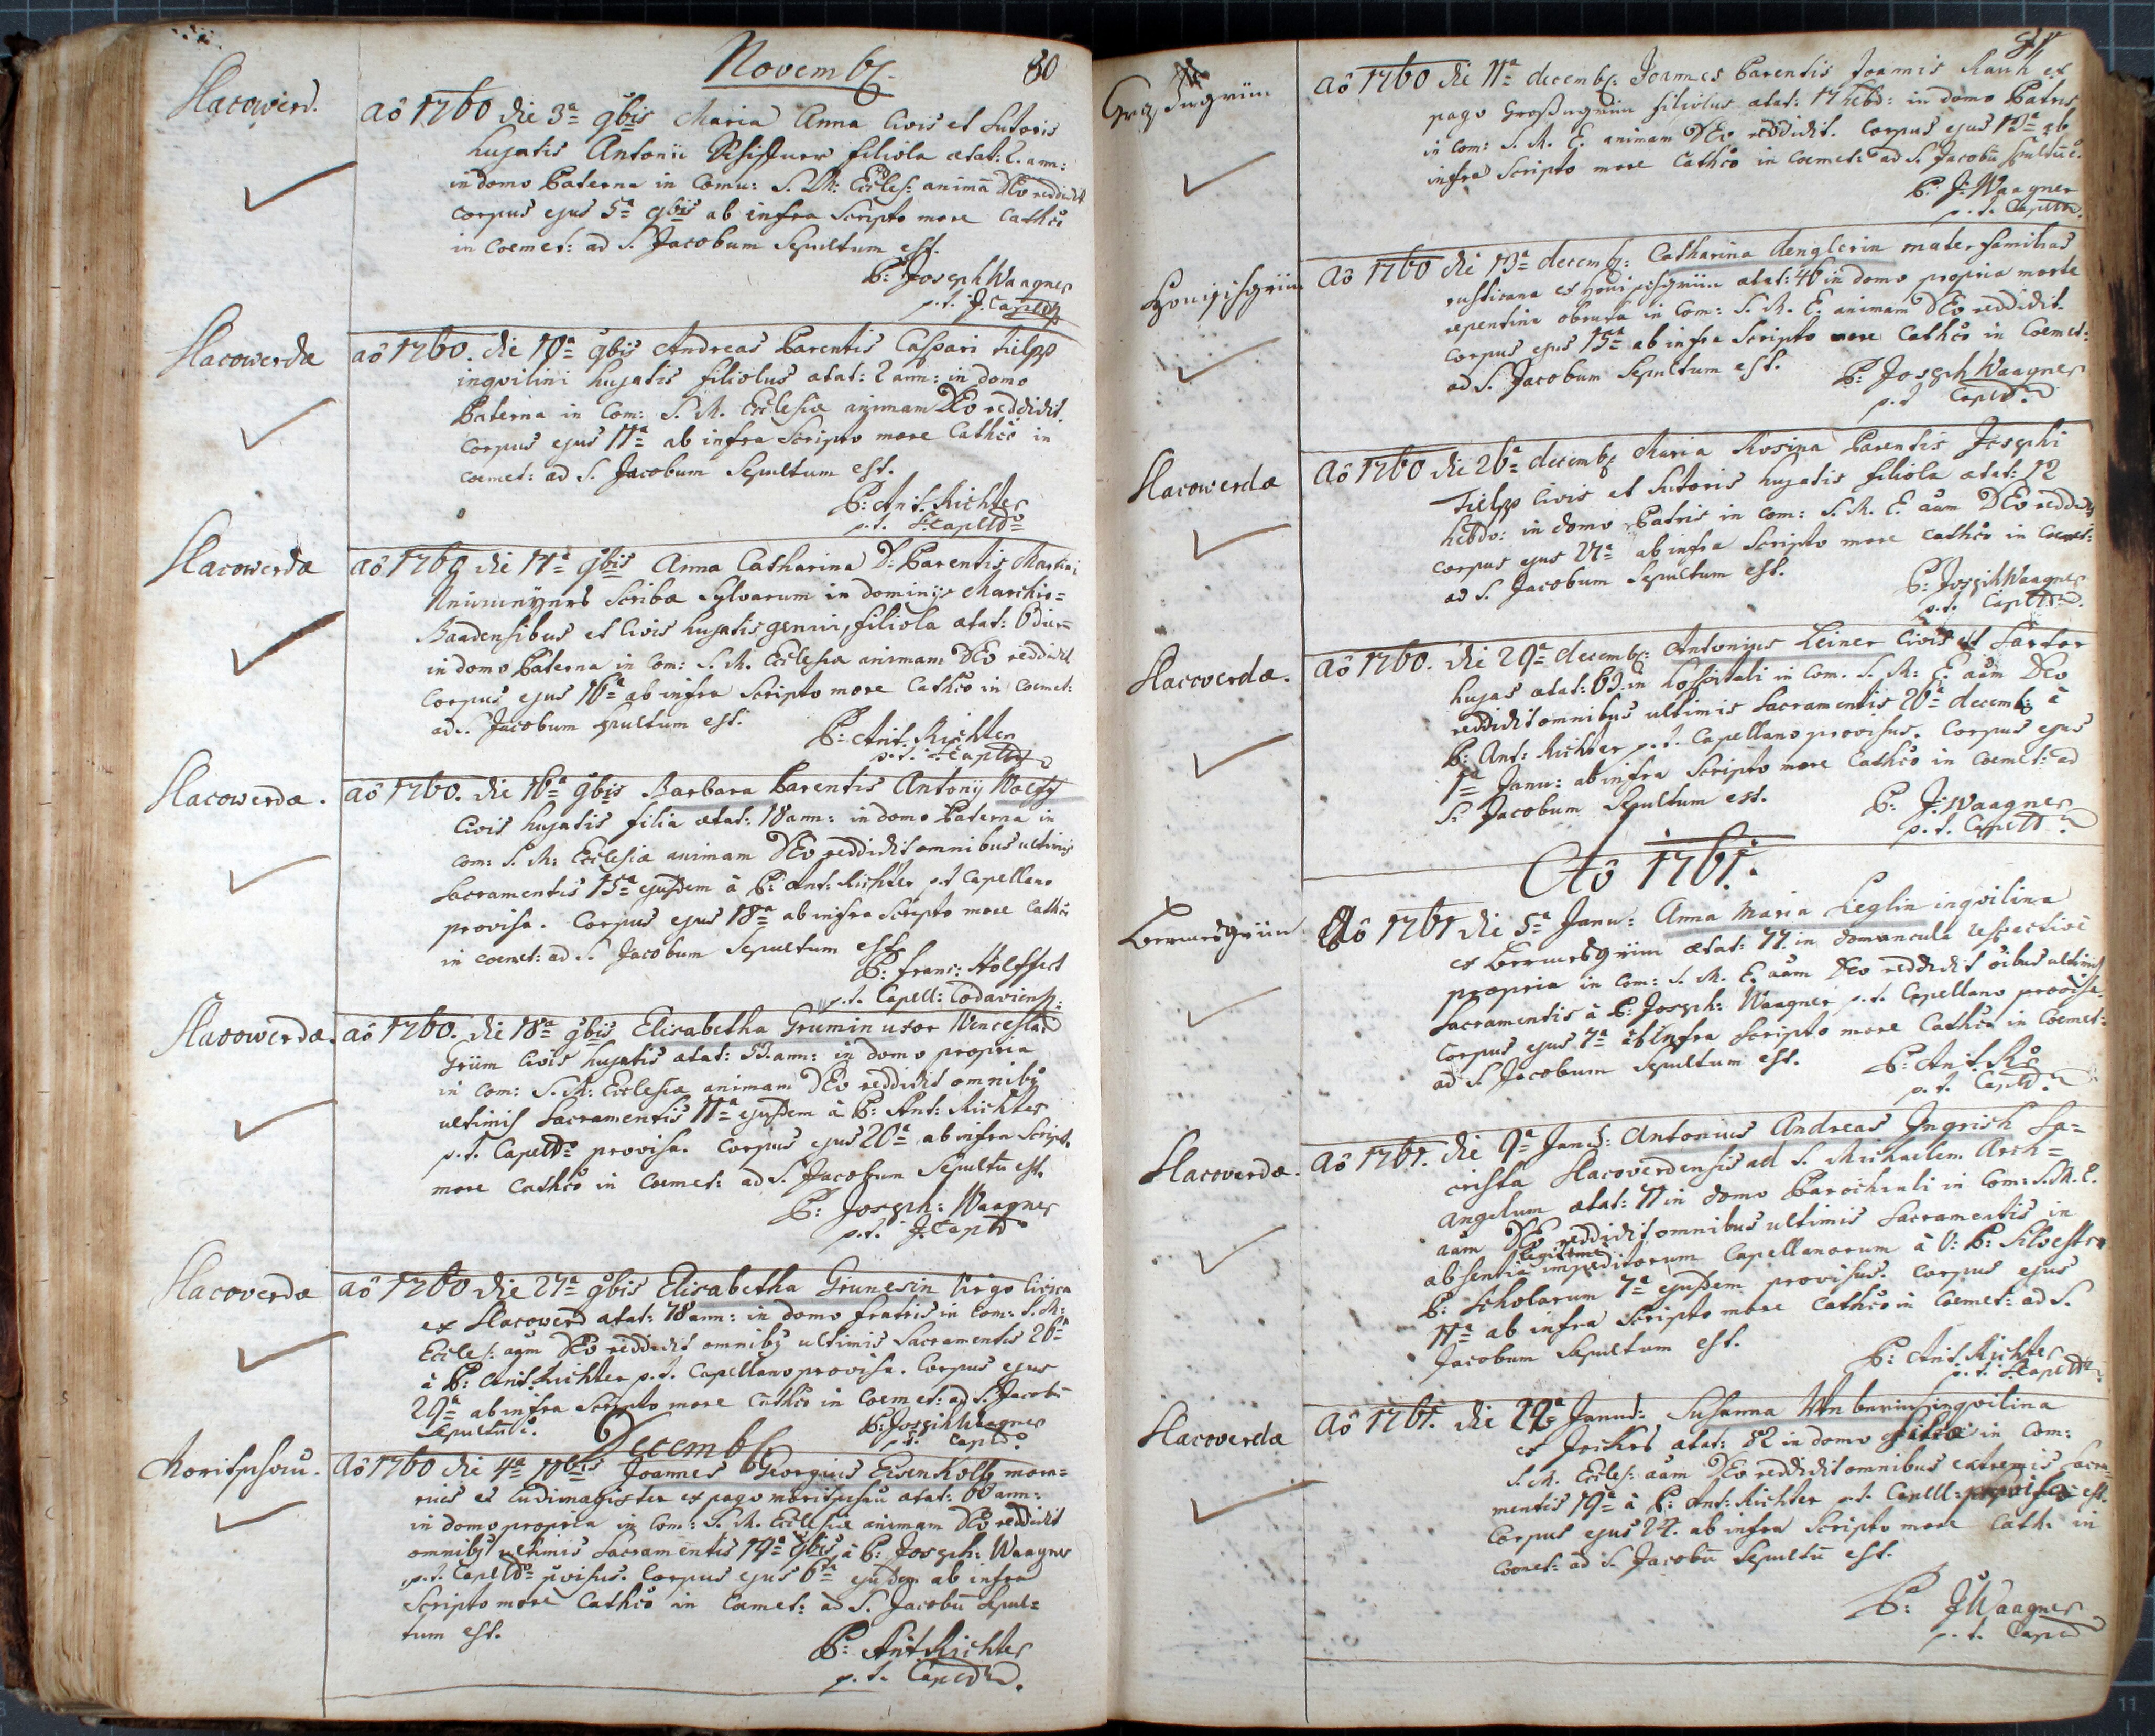 Novemb:
80
Slacowerd.
Aô 1760 die 3ª 9bis Maria Anna Civis et Sutoris
hujatis Antonii filiola ætat: 2. ann:
in domo Paterna in Comu: S. M: Eccles: animā DEo reddidit
corpus ejus 5ª 9bis ab infra Scripto more Cathco
in Coemet: ad S. Jacobum Sepultum est.
P: Joseph Waagner
p. t. J. Capelld
Slacowerdæ
aô 1760. die 10ª 9bis Andreas Parentis Caspari Fielpp
inqvilini hujatis filiolus ætat: 2 ann: in domo
Paterna in Com: S. M. Ecclesiæ animam DEo reddidit.
Corpus ejus 11ª ab infra Scripto more Cathco in
coemet: ad S. Jacobum Sepultum est.
P: Ant. Richter
p. t. S. Capelld
Slacowerdæ
aô 1760 die 14ª 9bis Anna Catharina D: Parentis Martini
Scribæ Sylvarum in dominijs Marchio=
Baadensibus et Civis hujatis filiola ætat: 6 dierū
in domo Paterna in Com: S. M. Ecclesiæ animam DEo reddidit
Corpus ejus 16ª ab infra Scripto more Cathco in coemet:
ad S. Jacobum sepultum est.
P: Ant. Richter
p. t. S. Capelld
Slacowerdæ.
aô 1760. die 16ª 9bis Barbara Parentis Antonij Wolff
Civis hujatis filia ætat: 18 ann: in domo Paterna in
com: S. M: Ecclesiæ animam DEo reddidit omnibus ultimis
Sacramentis 15ª ejusdem à P: Ant: Richter p. t. Capellano
provisa. Corpus ejus 18ª ab infra Scripto more Cathco
in coemet: ad S. Jacobum Sepultum est.
P: Franc: Höffect
p. t. Capell: Todaviens:
Slacowerdæ.
aô 1760. die 18ª 9bis Elisabetha Grumin uxor Wenceslai
Grüm Civis hujatis ætat: 53. ann: in domo propria
in Com: S. M: Ecclesiæ animam DEo reddidit omnibꝫ
ultimis Sacramentis 11ª ejusdem à P: Ant: Richter
p. t. Capelldo provisa. Corpus ejus 20ª ab infra Scripto
more Cathco in Coemet: ad S. Jacobum Sepultū est.
P: Joseph: Waagner
p. t. J. Capelldo
Slacoverdæ
aô 1760 die 27ª 9bis Elisabetha Grunesin Virgo Civica
ex Slacowerd ætat: 78 ann: in domo fratris in Com: S. M:
Eccles: aam DEo reddidit omnibꝫ ultimis Sacramentis 26ª
à P: Ant: Richter p. t. Capellano provisa. Corpus ejus
29ª ab infra Scripto more Cathco in Coemet: ad S. Jacobū
Sepultū ē.
P: Joseph Waagner
p. t. Capelldo
Decemb:
Moritschau.
Aô 1760 die 4ª 10bris Joannes Georgius Eisenkolb mora=
rius et Ludimagister ex pago Moritschau ætat: 66 ann:
in domo propria in Com: S. M. Ecclesiæ animam DEo reddidit
omnibꝫ ultimis Sacramentis 19ª 9bis à P: Joseph: Waagner
p. t. Capelldo pvisus. Corpus ejus 6ta ejusdem ab infra
Scripto more Cathco in Coemet: ad S. Jacobū Sepul=
tum est.
P: Ant Richter
p. t. Capelld.
81
Aô 1760 die 11ª decemb: Joannes Parentis Joannis Rauh ex
pago Grossngrün filiolus ætat: 17 hebd: in domo Patris
in Com: S. M. E. animam DEo reddidit. Corpus ejus 13ª ab
infra Scripto more Cathco in coemet: ad S. Jacobū sepultū ē.
P: J: Waagner
p. t. Capelld.
Honigisgrün
Aô 1760 die 13ª decemb: Catharina denglerin mater familias
rusticana ex ætat: 46 in domo propria morte
repentina obruta in Com: S. M. E. animam DEo reddidit.
Corpus ejus 15ª ab infra Scripto more Cathco in Coemet:
ad S. Jacobum Sepultum est.
P: Joseph Waagner
p. t. Capelld.
Slacowerdæ
Aô 1760 die 26ª decemb: Maria Rosina Parentis Josephi
Fielpp Civis et Sutoris hujatis filiola ætat: 12
hebdo: in domo Patris in Com: S. M. E. aam DEo reddidit
Corpus ejus 27ª ab infra Scripto more Cathco in Coemet:
ad S. Jacobum Sepultum est.
P: Joseph Waagner
p. t. Capelld.
Slacoverdæ.
Aô 1760. die 29ª decemb: Antonius Leiner Civis et Sartor
hujas ætat: 63. in hospitali in Com. S. M: E. aam DEo
reddidit omnibus ultimis Sacramentis 20ª decemb: à
P: Ant: Richter p. t. Capellano provisus. Corpus ejus
1ª Janu: ab infra Scripto more Cathco in Coemet: ad
S. Jacobum Sepultum est.
P: J: Waagner
p. t. Capelld.
Aô 1761.
Bermesgrün
Aô 1761 die 5ª Janu: Anna Maria Lieglin inqvilina
ex Bermesgrün ætat: 77. in domuncula respective
propria in Com: S. M. E. aam DEo reddidit oibus ultimis
Sacramentis à P: Joseph: Waagner p. t. Capellano provisa.
Corpus ejus 7ª ab infra Scripto more Cathco in Coemet:
ad S. Jacobum Sepultum est.
P: Ant. R.
p. t. Capelld.
Slacoverdæ.
Aô 1761. die 9ª Janu: Antonius Andreas Ingrisch Sa=
crista Slacoverdensis ad S. Michaelem Arch=
angelum ætat: 71 in domo Parochiali in Com: S. M. E.
aam DEo reddidit omnibus ultimis Sacramentis in
absentia legitime impeditorum Capellanorum à V: P: Silvestro
P: Scholarum 7ª ejusdem provisus. Corpus ejus
11ª ab infra Scripto more Cathco in Coemet: ad S.
Jacobum Sepultum est.
P: Ant. Richter
p. t. S. Capelld.
Slacoverdæ
Aô 1761. die Janu: Susanna inqvilina
ex ætat: 82 in domo in Com:
S. M. Eccles: aam DEo reddidit omnibus extremis Sacra=
mentis 19ª à P: Ant: Richter p. t. Capell: provisa est.
Corpus ejus 24. ab infra Scripto more Cath: in
coemet: ad S. Jacobū Sepultū est.
P: J Waagner
p. t. Capelld